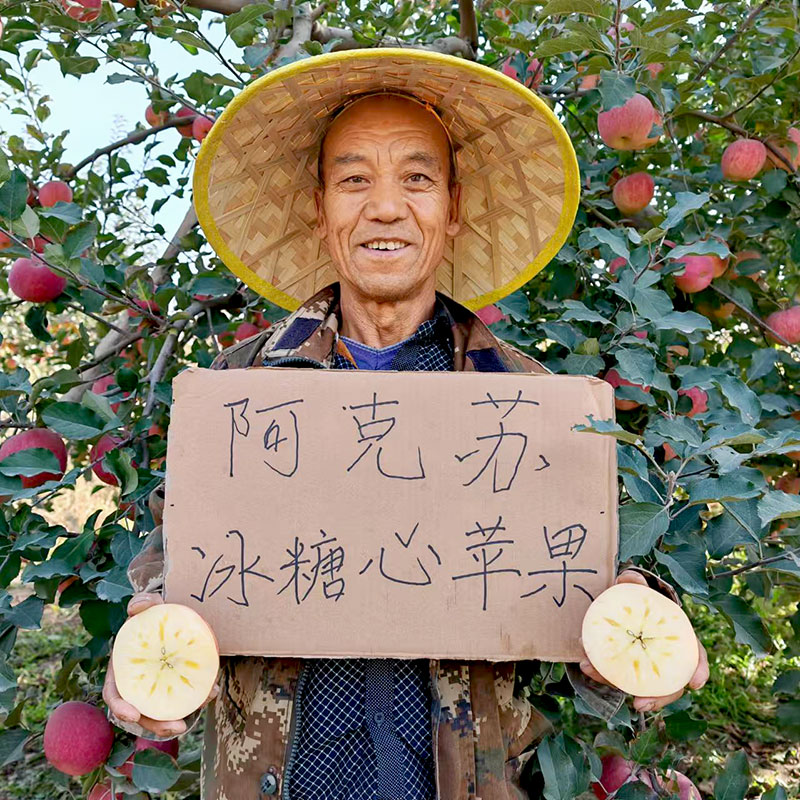 阿克苏
冰糖心苹果